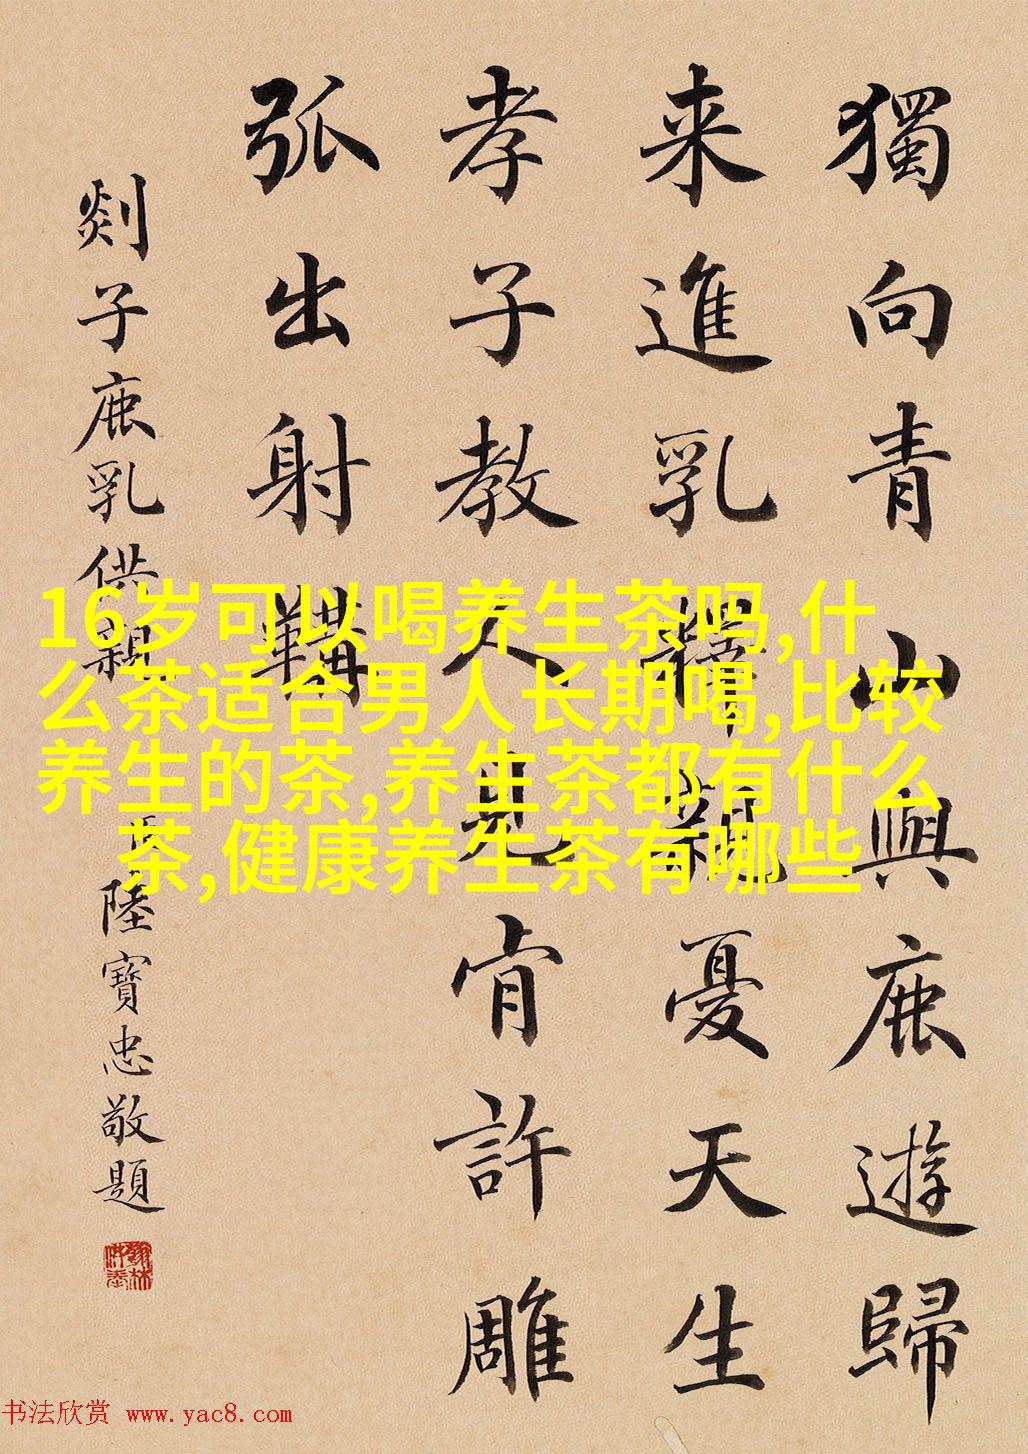 獨向青山與鹿遊歸
来進乳釋親憂天生
孝子教人見肯許雕
弧出射鞲
剡子鹿乳供親
陸寶忠敬題
16岁可以喝养生茶吗,什
么茶适合男人长期喝,比较
养生的茶,养生茶都有什么
茶,健康养生茶有哪些
书法欣赏 www.yac8.com